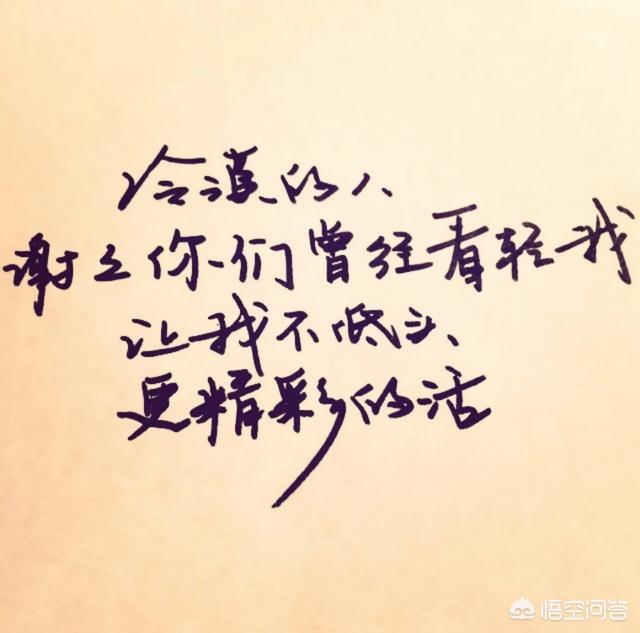 冷漠的人
谢谢你们曾经看轻我
让我不低头
更精彩的活
悟空问答